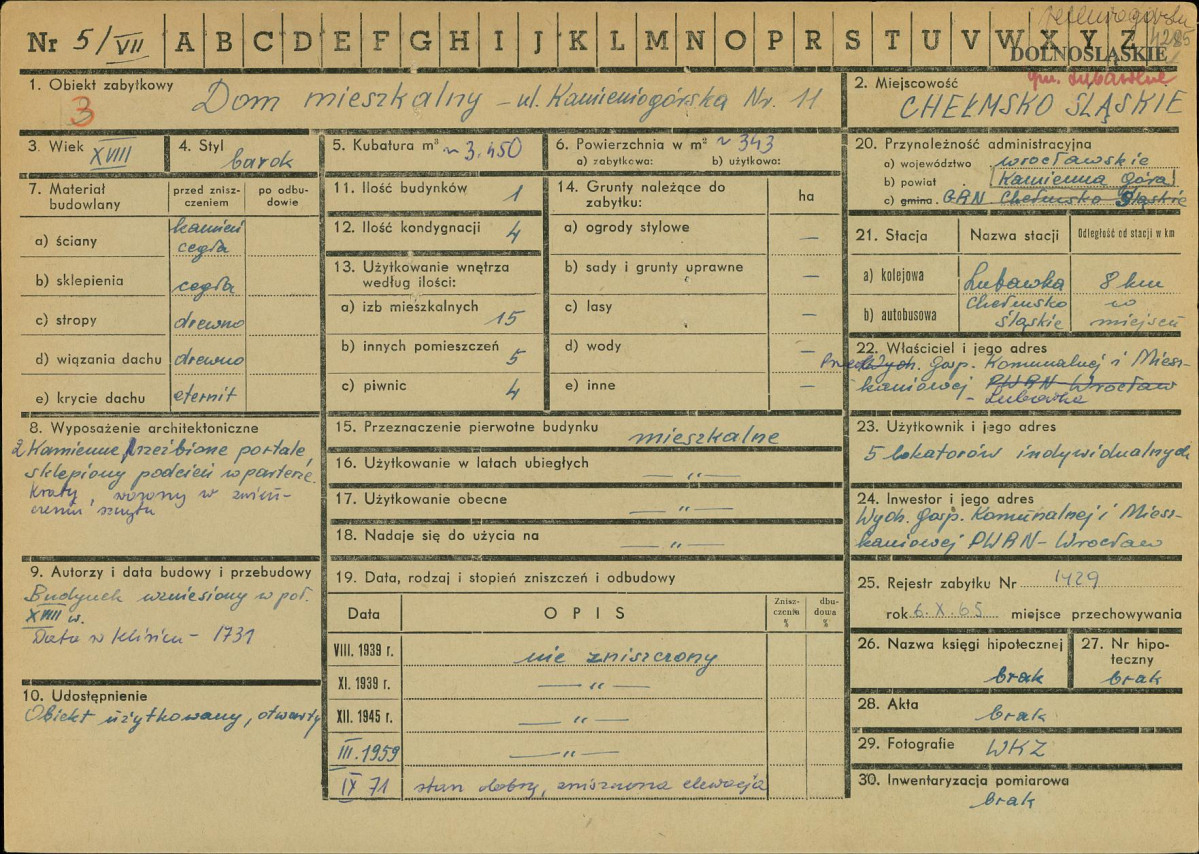 Nr 5/VII A B C D E F G H I J K L M N O P R S T U V W X Y Z 4285
DOLNOŚLĄSKIE
gm. Lubawka
1. Obiekt zabytkowy
3
Dom mieszkalny – ul. Kamieniogórska Nr. 11
2. Miejscowość
CHEŁMSKO ŚLĄSKIE
3. Wiek
XVIII
4. Styl
barok
5. Kubatura m³ ~ 3.450
6. Powierzchnia w m² ~ 343
a) zabytkowa: b) użytkowo:
7. Materiał budowlany
przed zniszczeniem
po odbudowie
a) ściany kamień cegła
b) sklepienia cegła
c) stropy drewno
d) wiązania dachu drewno
e) krycie dachu eternit
8. Wyposażenie architektoniczne
2 Kamienne rzeźbione portale,
sklepiony podcień w parterze.
Kraty, wazony w zwień-
czeniu szczytu
9. Autorzy i data budowy i przebudowy
Budynek wzniesiony w poł.
XVIII w.
Data w kluczu – 1731
10. Udostępnienie
Obiekt użytkowany, otwarty
11. Ilość budynków 1
12. Ilość kondygnacji 4
13. Użytkowanie wnętrza
według ilości:
a) izb mieszkalnych 15
b) innych pomieszczeń 5
c) piwnic 4
14. Grunty należące do
zabytku:
ha
a) ogrody stylowe —
b) sady i grunty uprawne —
c) lasy —
d) wody —
e) inne —
15. Przeznaczenie pierwotne budynku mieszkalne
16. Użytkowanie w latach ubiegłych —"—
17. Użytkowanie obecne —"—
18. Nadaje się do użycia na —"—
19. Data, rodzaj i stopień zniszczeń i odbudowy
Data
OPIS
Zniszczenie %
dbudowa %
VIII. 1939 r. nie zniszczony
XI. 1939 r. —"—
XII. 1945 r. —"—
III. 1959 —"—
IX 71 stan dobry, zniszczona elewacja
20. Przynależność administracyjna
a) województwo wrocławskie
b) powiat Kamienna Góra
c) gmina. GRN Chełmsko Śląskie
21. Stacja
Nazwa stacji
Odległość od stacji w km
a) kolejowa Lubawka 8 km
b) autobusowa Chełmsko Śląskie w miejscu
22. Właściciel i jego adres
Wydz. Gosp. Komunalnej i Miesz-
kaniowej PWRN Wrocław
- Lubawka
23. Użytkownik i jego adres
5 lokatorów indywidualnych
24. Inwestor i jego adres
Wydz. Gosp. Komunalnej i Miesz-
kaniowej PWRN – Wrocław
25. Rejestr zabytku Nr 1429
rok 6.X.65 miejsce przechowywania
26. Nazwa księgi hipotecznej
brak
27. Nr hipo-
teczny
brak
28. Akta
brak
29. Fotografie WKZ
30. Inwentaryzacja pomiarowa
brak